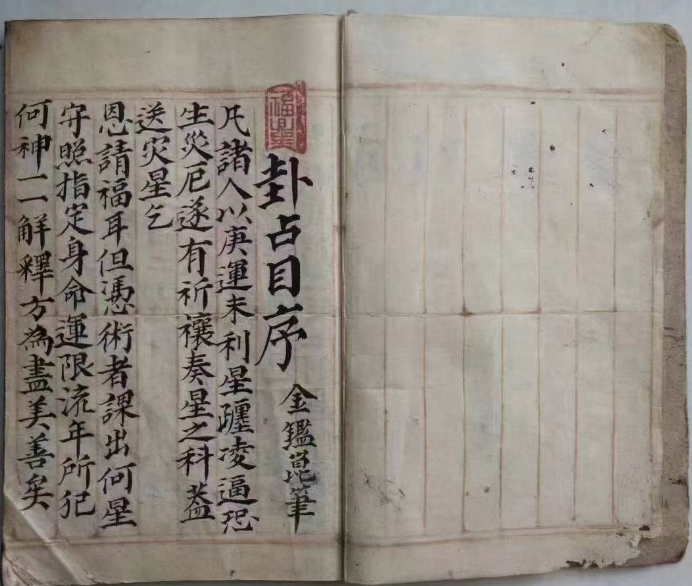 卦占目序
金鑑崑筆
凡諸人以庚運未利星躔凌逼恐
生災厄遂有祈禳奏星之科蓋
送灾星乞
恩請福耳但憑術者課出何星
守照指定身命運限流年所犯
何神一一解釋方為盡美善矣